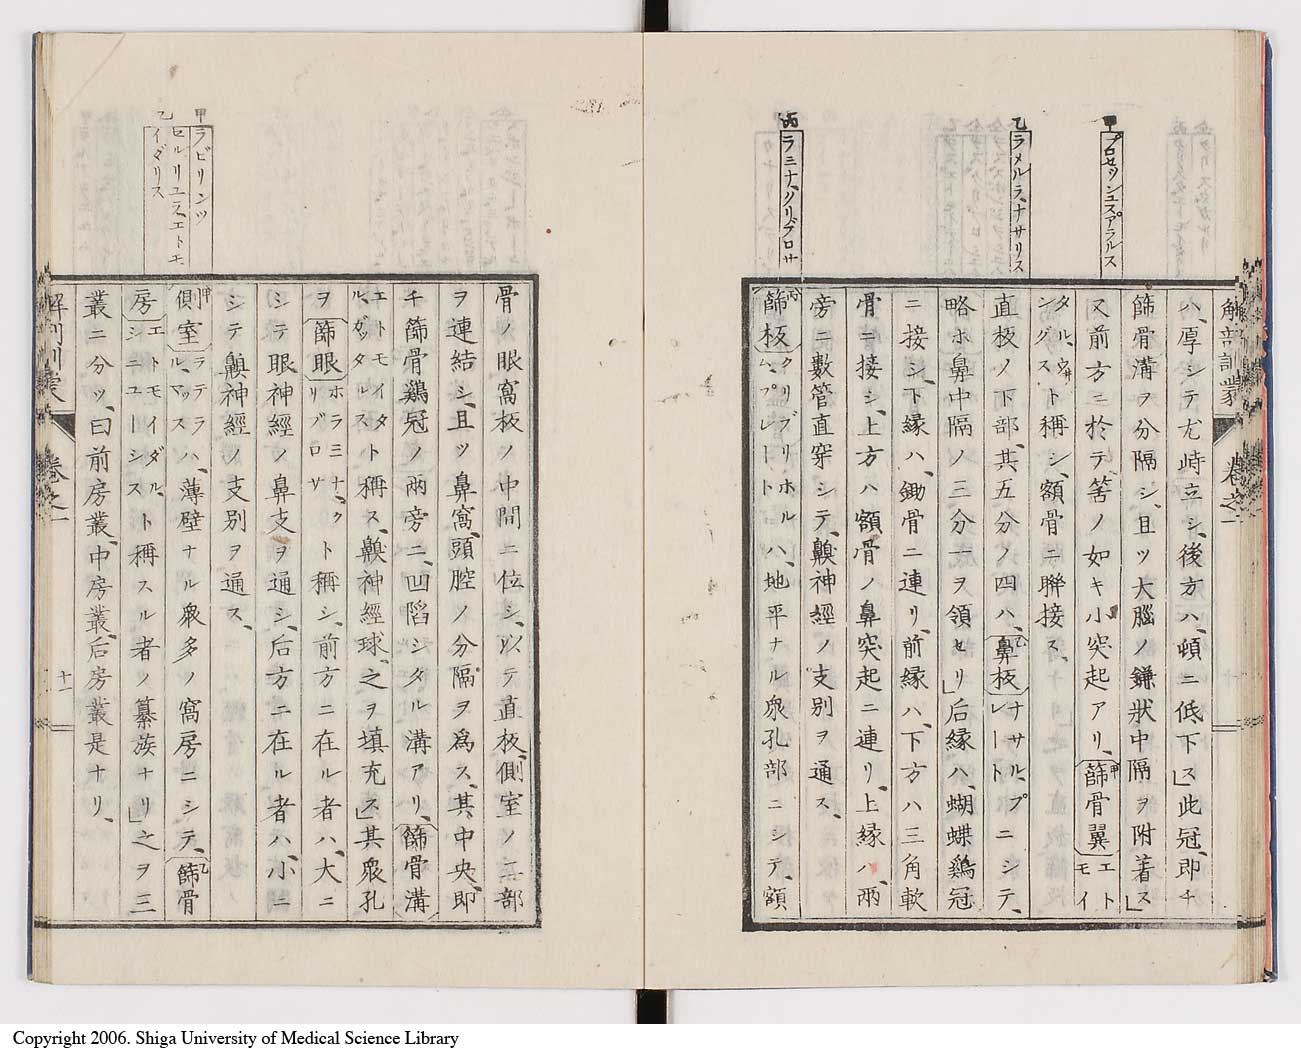 プロセッシュスアラルス
ラメルラ、ナサリス
ラミナ、クリブロサ
解剖訓蒙
卷之一
ハ、厚シテ尤峙立シ、後方ハ、頓ニ低下ス」此冠、即チ
篩骨溝ヲ分隔シ、且ツ大腦ノ鎌狀中隔ヲ附着ス」
又前方ニ於テ筈ノ如キ小突起アリ、篩骨翼 エトモイ
タル、ウ井ングス ト稱シ、額骨ニ聯接ス、
直板ノ下部、其五分ノ四ハ、鼻板 ナサル、プレート ニシテ、
略ホ鼻中隔ノ三分一ヲ領セリ」后緣ハ、蝴蝶鷄冠
ニ接シ、下緣ハ、鋤骨ニ連リ、前緣ハ、下方ハ三角軟
骨ニ接シ、上方ハ額骨ノ鼻突起ニ連リ、上緣ハ、兩
旁ニ數管直穿シテ、齅神經ノ支別ヲ通ス、
篩板 クリブリホルム、プレート ハ、地平ナル衆孔部ニシテ、額
甲 ラビリンツ
乙 セルリユラ、エトモイダリス
骨ノ眼窩板ノ中間ニ位シ、以テ直板、側室ノ二部
ヲ連結シ、且ツ鼻窩、頭腔ノ分隔ヲ爲ス、其中央、即
チ篩骨鷄冠ノ兩旁ニ、凹陷シタル溝アリ、篩骨溝
エトモイタル、ガッタルス ト稱ス、齅神經球、之ヲ塡充ス」其衆孔
ヲ篩眼 ホラミナ、クリバロサ ト稱シ、前方ニ在ル者ハ、大ニ
シテ眼神經ノ鼻支ヲ通シ、后方ニ在ル者ハ、小ニ
シテ齅神經ノ支別ヲ通ス、
側室 ラテラル、マッス ハ、薄壁ナル衆多ノ窩房ニシテ、篩骨
房 エトモイダル、シニユーシス ト稱スル者ノ纂族ナリ」之ヲ三
叢ニ分ツ、曰前房叢、中房叢、后房叢是ナリ、
卷之一
十一
Copyright 2006. Shiga University of Medical Science Library